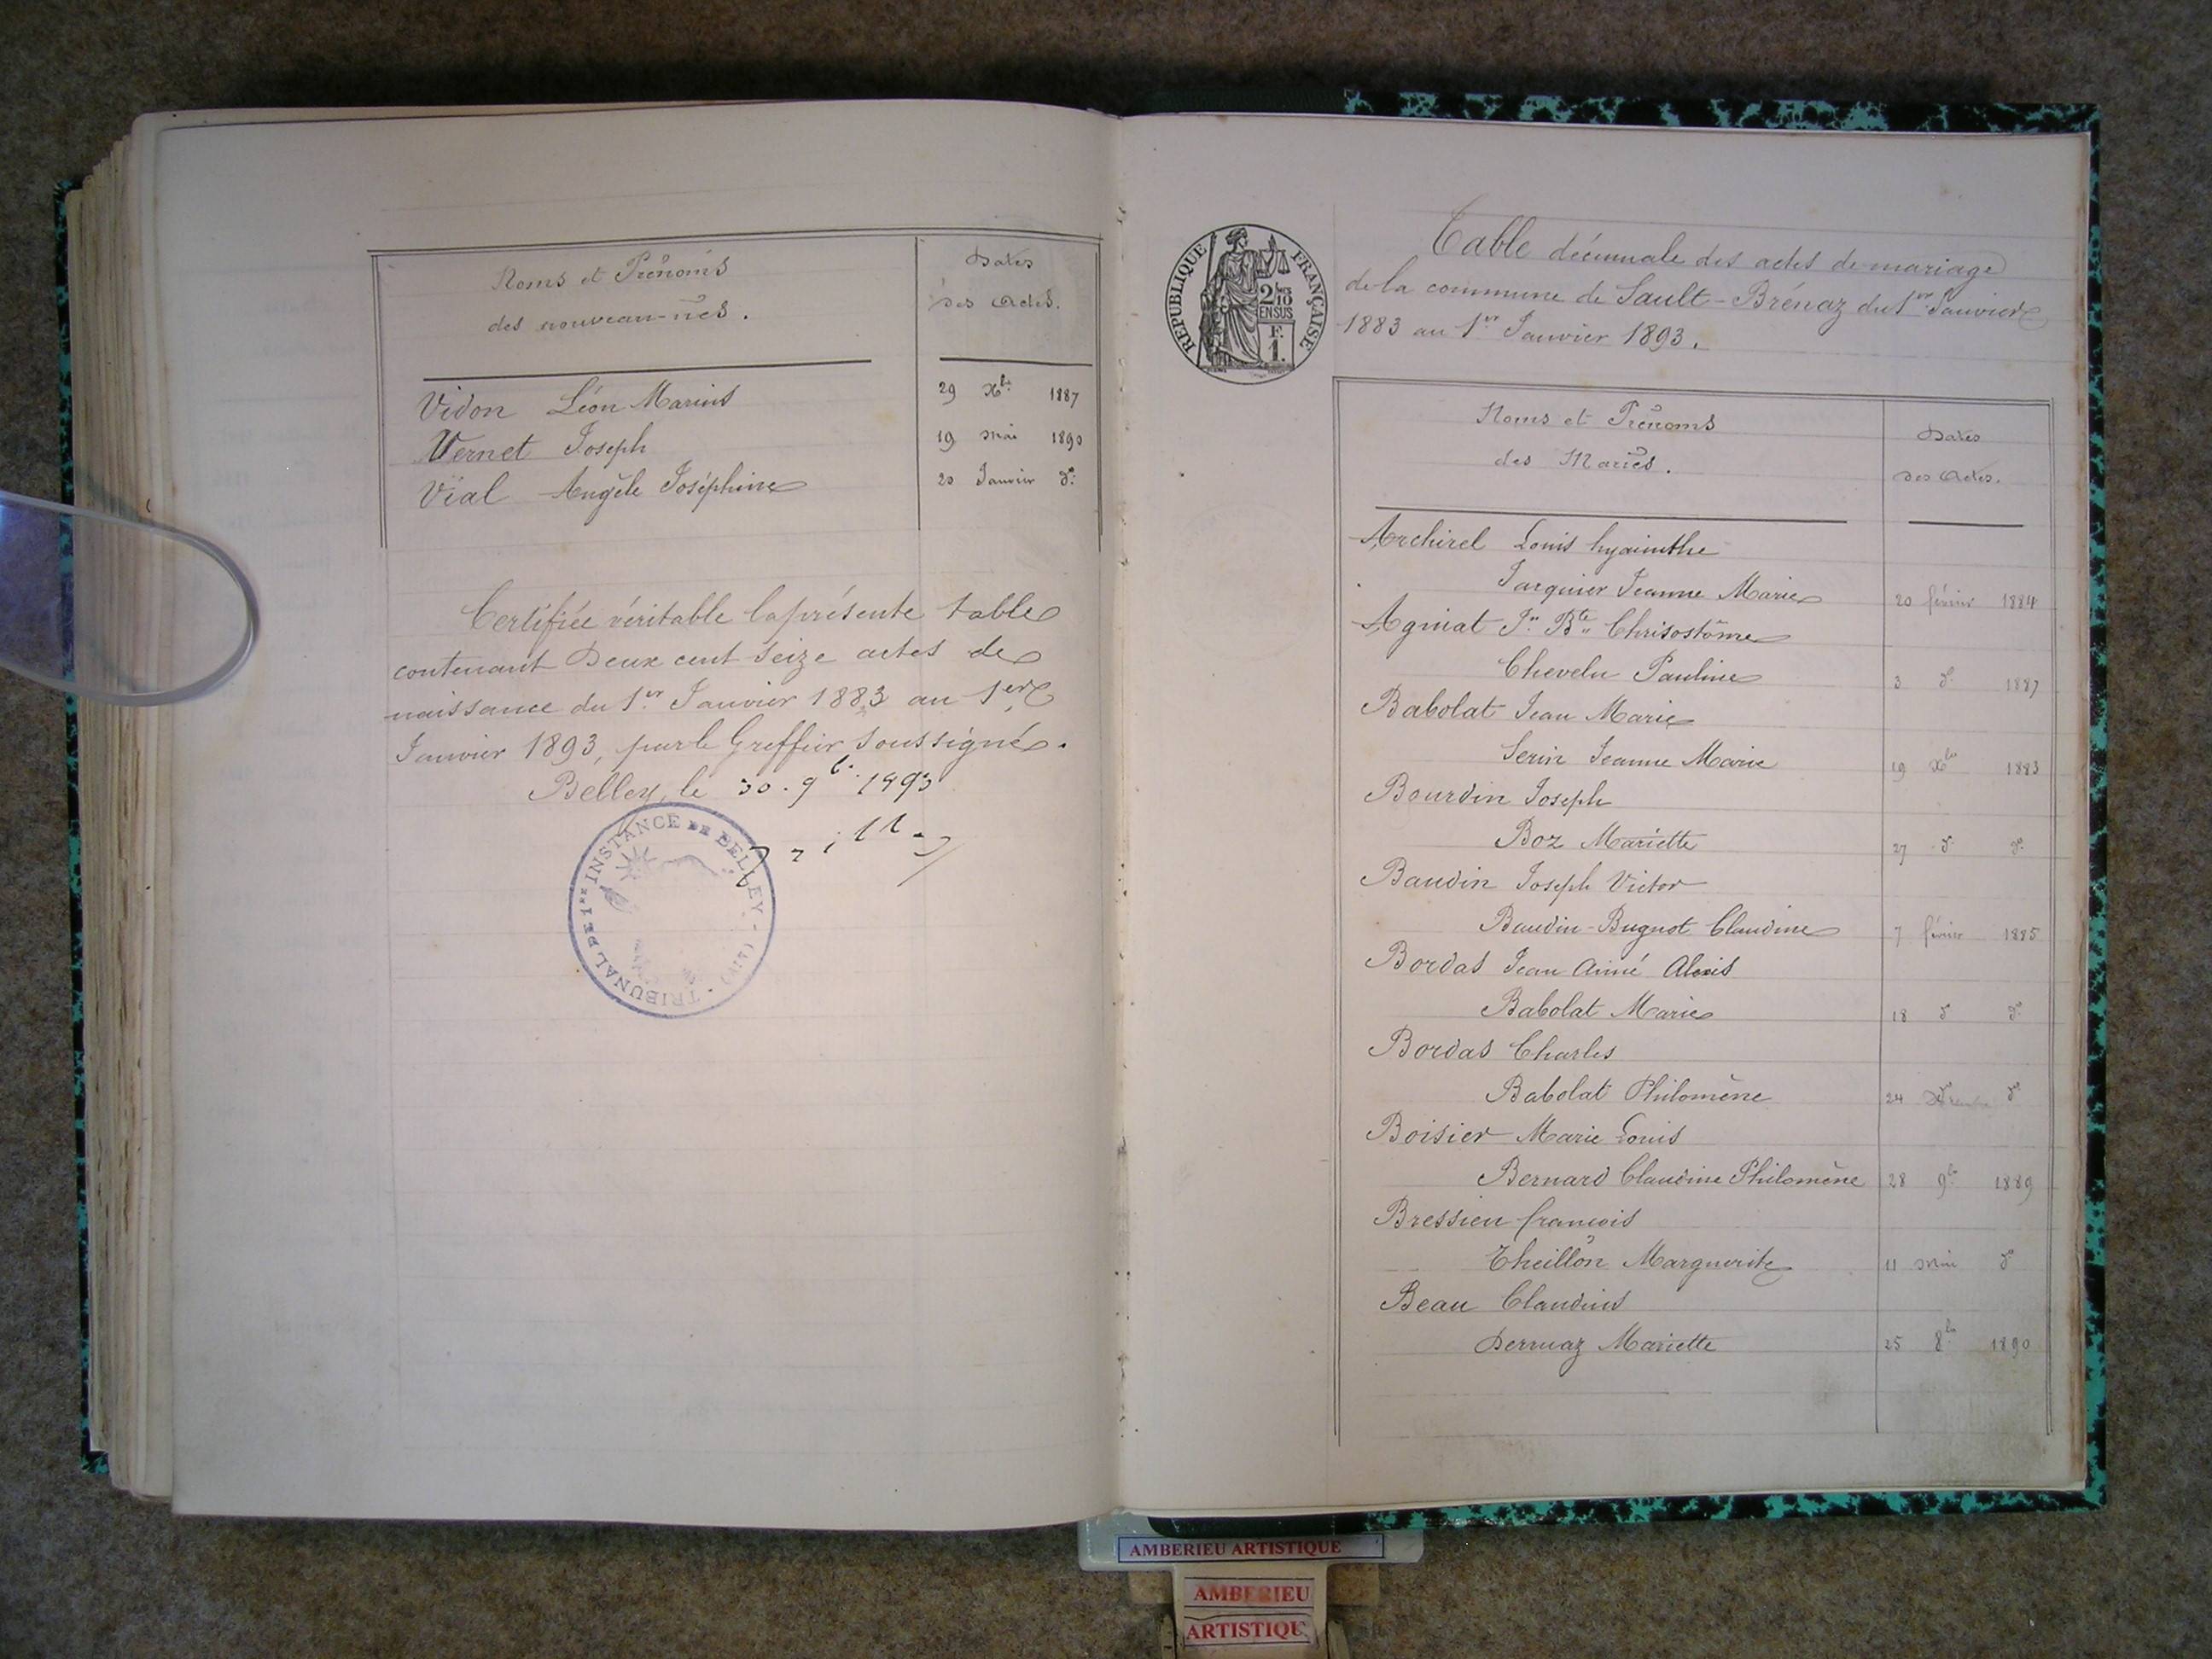 Noms et Prénoms
des nouveau-nés.
Dates
des Actes.
Vidon Léon Marius 29 Xbre 1887
Vernet Joseph 19 mai 1890
Vial Angèle Joséphine 20 Janvier do
Certifiée véritable la présente table
contenant Deux cent seize actes de
naissance du 1er Janvier 1883 au 1er
Janvier 1893, par le Greffier soussigné.
Belley, le 30. 9b. 1893
TRIBUNAL DE 1RE INSTANCE DE BELLEY
REPUBLIQUE FRANÇAISE
2/10
EN SUS
F.
1.
Table décennale des actes de mariage
de la commune de Sault-Brénaz du 1er Janvier
1883 au 1er Janvier 1893.
Noms et Prénoms
des Mariés.
Dates
des Actes.
Archirel Louis hyacinthe
Jarquier Jeanne Marie 20 février 1884
Agniat Jn Bte Chrisostôme
Chevelu Pauline 3 do 1887
Babolat Jean Marie
Serin Jeanne Marie 19 Xbre 1883
Bourdin Joseph
Boz Mariette 27 do do
Baudin Joseph Victor
Baudin-Bugnot Claudine 7 février 1885
Bordas Jean Aimé Alexis
Babolat Marie 18 do do
Bordas Charles
Babolat Philomène 24 do
Boisier Marie Louis
Bernard Claudine Philomène 28 9b. 1889
Bressieu françois
Cheillon Marguerite 11 mai do
Beau Claudius
Derruaz Mariette 25 8b. 1890
AMBERIEU ARTISTIQUE
AMBERIEU
ARTISTIQU